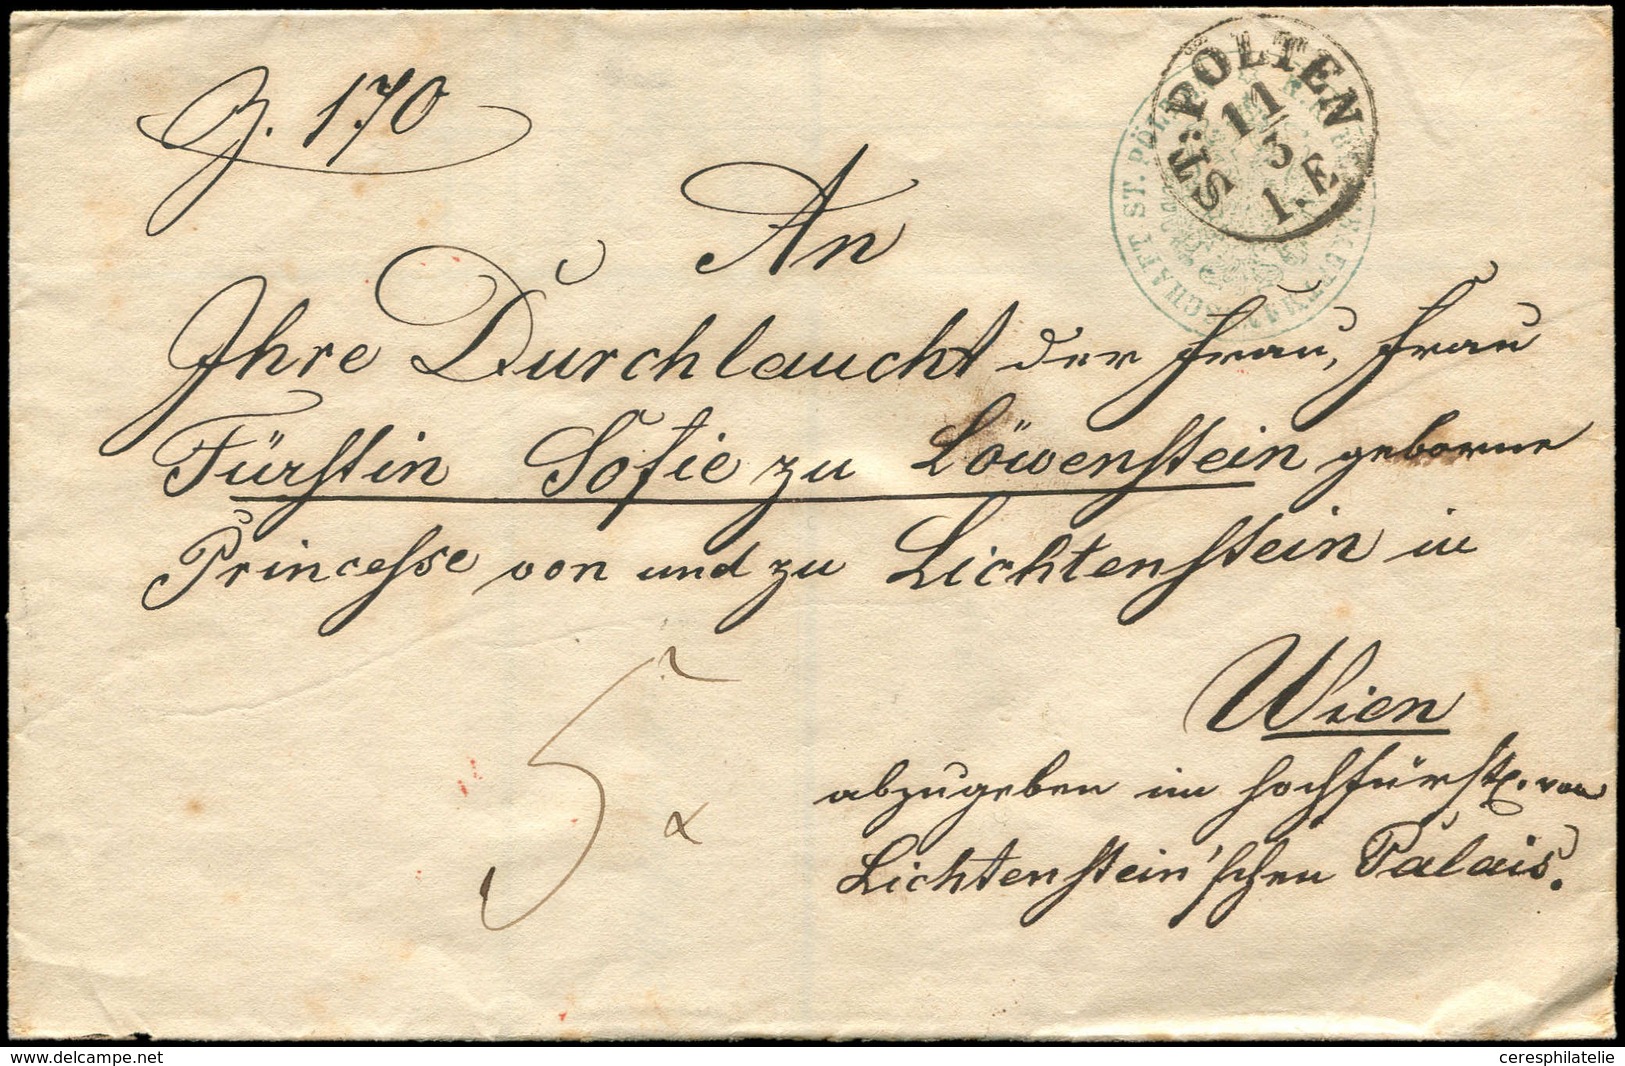 Z. 170
ST: PÖLTEN
11/3
1. E.
ST. PÖL
An
Ihre Durchlaucht der Frau, Frau
Fürstin Sofie zu Löwenstein geborne
Princesse von und zu Lichtenstein in
Wien
abzugeben im hochfürstl. von
Lichtenstein'schen Palais.
5
delcampe.net
ceresphilatelie